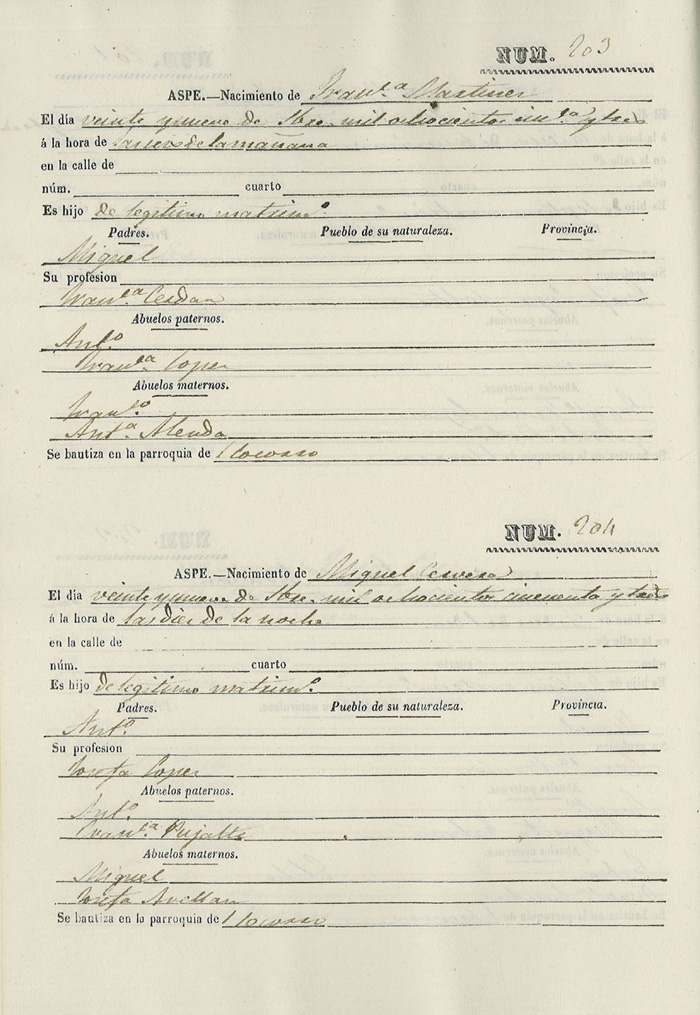 NUM. 203
ASPE.—Nacimiento de Fran.ca Martinez
El día veinte y nueve de 9bre. mil ochocientos cinc.ta y tres
á la hora de las de la mañana
en la calle de
núm. cuarto
Es hijo de legitimo matrim.o
Padres. Pueblo de su naturaleza. Provincia.
Miguel
Su profesion
Fran.ca Cerdan
Abuelos paternos.
Ant.o
Fran.ca Lopez
Abuelos maternos.
Fran.co
Ant.a Alenda
Se bautiza en la parroquia de l Socorro
NUM. 204
ASPE.—Nacimiento de Miguel Cervera
El día veinte y nueve de 9bre. mil ochocientos cincuenta y tres
á la hora de las diez de la noche
en la calle de
núm. cuarto
Es hijo de legitimo matrim.o
Padres. Pueblo de su naturaleza. Provincia.
Ant.o
Su profesion
Josefa Lopez
Abuelos paternos.
Ant.o
Fran.ca Pujalte
Abuelos maternos.
Miguel
Josefa Avellan
Se bautiza en la parroquia de l Socorro